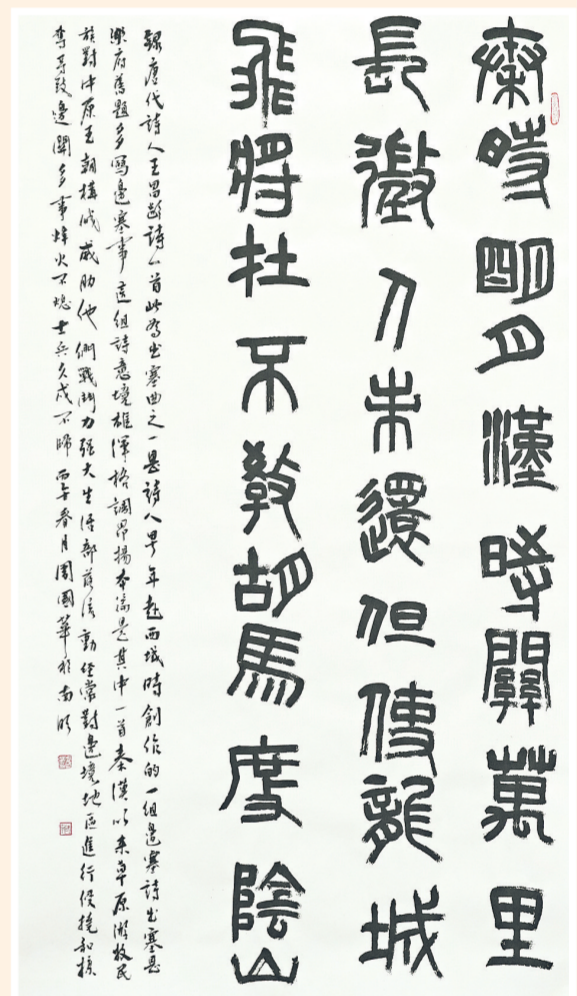 秦時明月漢時關萬里
長徵人未還但使龍城
飛將在不教胡馬度陰山
錄唐代詩人王昌齡詩一首此為出塞曲之一是詩人早年赴西域時創作的一組邊塞詩出塞是
樂府舊題多寫邊塞事這組詩意境雄渾格調昂揚本篇是其中一首秦漢以來草原游牧民
族對中原王朝構成威脅他們戰鬥力強大生活部落流動經常對邊境地區進行侵擾和掠
奪導致邊關多事烽火不熄士兵久戍不歸丙午春月周國華於南